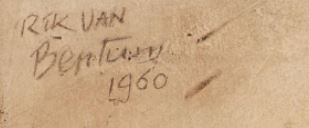 RIK VAN
Bentum
1960